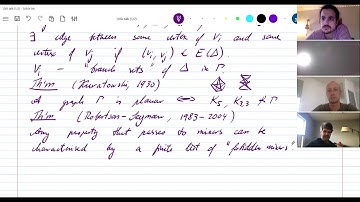 ∃ edge between some vertex of V_i and some
vertex of V_j if (v_i, v_j) ∈ E(Δ)
V_i - "branch sets" of Δ in Γ
Th'm (Kuratowski, 1930)
A graph Γ is planar ⟺ K_5, K_{2,3} ⊀ Γ
Th'm (Robertson-Seymour, 1983-2004)
Any property that passes to minors can be
characterised by a finite list of "forbidden minors"